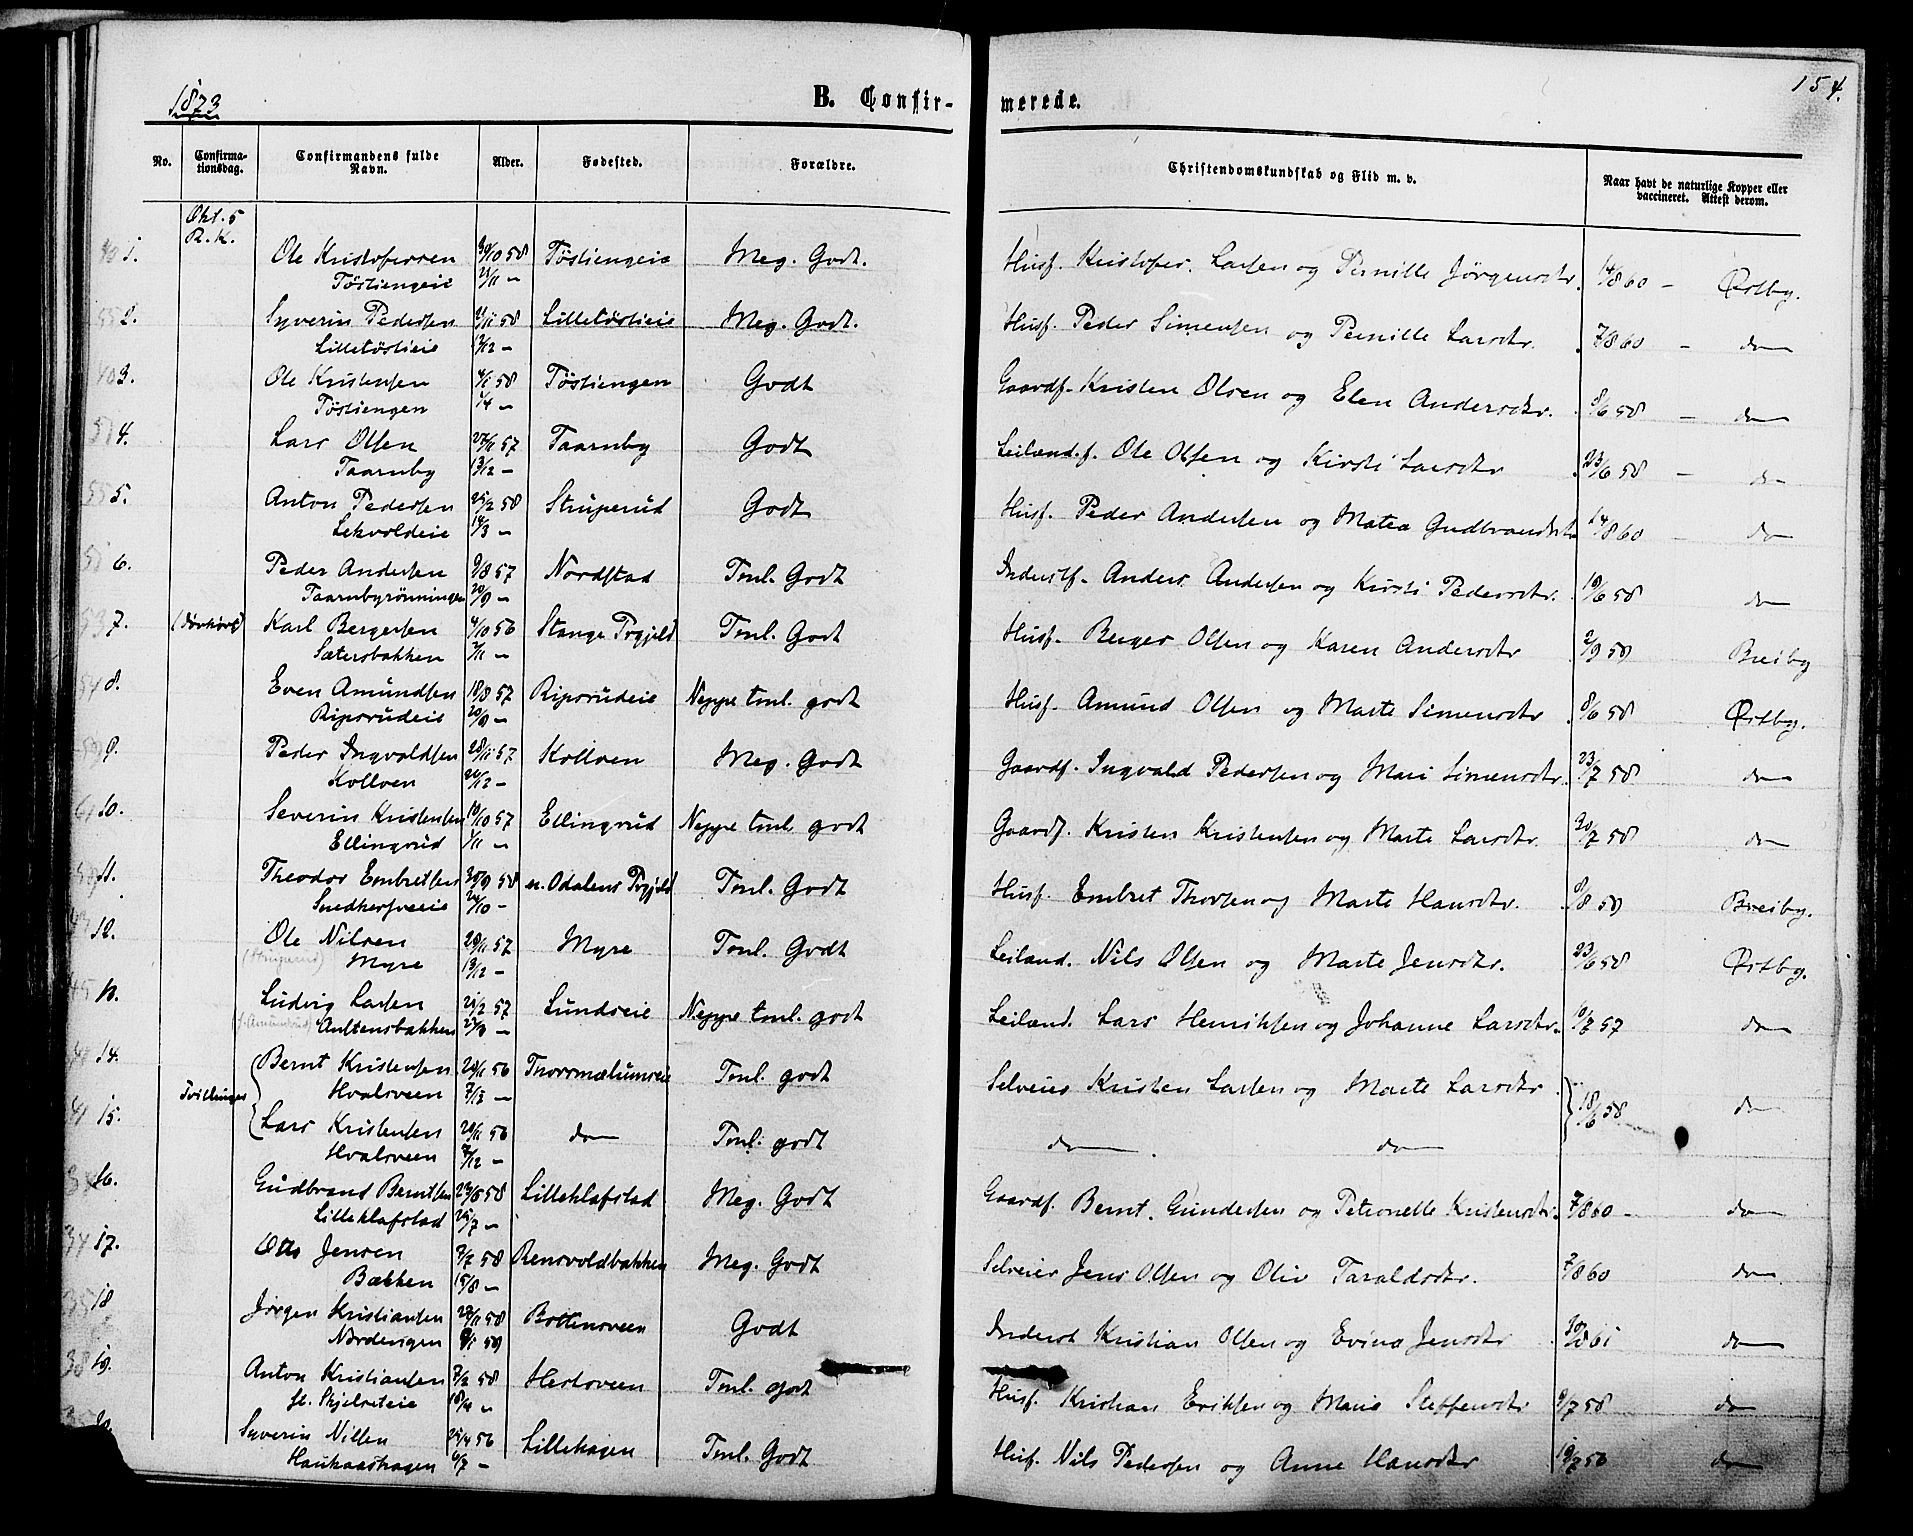 1873
B. Confir-
merede.
154.
No.
Confirma-
tionsdag.
Confirmandens fulde
Navn.
Alder.
Fødested.
Forældre.
Christendomskundskab og Flid m. v.
Naar havt de naturlige Kopper eller
vaccineret. Attest derom.
Okt. 5
R. K.
1. Ole Kristofersen 30/10 58 Töstiengeie Meg. Godt. Husf. Kristofer Larsen og Pernille Jörgensdtr. 14/8 60 - Østby.
Töstiengeie 21/11 -
2. Syverin Pedersen 21/11 58 Lilletöstieie Meg. Godt. Husf. Peder Simensen og Pernille Larsdtr. 7/8 60 - do
Lilletöstieie 12/12 -
3. Ole Kristensen 4/1 58 Töstiengen Godt Gaardf. Kristen Olsen og Elen Andersdtr. 8/6 58 - do
Töstiengen 1/4 -
4. Lars Olsen 27/11 57 Taarnby Godt Leilænd.f. Ole Olsen og Kirsti Larsdtr 23/6 58 - do
Taarnby 13/12 -
5. Anton Pedersen 25/2 58 Struperud Godt Husf. Peder Andersen og Matea Gudbrandsdtr 14/8 60 - do
Sekvoldeie 14/3 -
6. Peder Andersen 9/8 57 Nordstad Tml. Godt Inderstf. Anders Andersen og Kirsti Pedersdtr. 19/6 58 do
Taarnbyrönningen 20/9 -
7. Karl Bergersen 4/10 56 Stange Prgjeld Tml. Godt Husf. Berger Olsen og Karen Andersdtr 2/9 59 Breiby
Sætersbakken 2/11 -
8. Even Amundsen 18/8 57 Ripsrudeie Neppe tml. godt Husf. Amund Olsen og Marte Simensdtr 8/6 58 Østby.
Ripsrudeie 20/9 -
9. Peder Ingvaldsen 28/11 57 Kolloen Meg. Godt Gaardf. Ingvald Pedersen og Mari Simensdtr. 23/7 58 do
Kolloen 26/12 -
10. Severin Kristensen 10/10 57 Ellingsrud Neppe tml. godt Gaardf. Kristen Kristensen og Marte Larsdtr. 30/7 58 do
Ellingsrud 1/11 -
11. Theodor Embretsen 30/9 58 n. Odalens Prgjeld Tml. Godt Husf. Embret Thorsen og Marte Hansdtr. 8/8 59 Breiby.
Snedkersveeie 24/10 -
12. Ole Nilsen 20/11 57 Myre Tml. Godt Leilænd. Nils Olsen og Marte Jensdtr. 23/6 58 Østby.
(Struperud) Myre 13/12 -
13. Ludvig Larsen 21/2 57 Lundseie Neppe tml. godt Leilænd. Lars Henriksen og Johanne Larsdtr. 10/7 57 do
Austensbakken 27/3 -
14. Bernt Kristensen 20/11 56 Thorsmælumseie Tml. godt Selveier Kristen Larsen og Marte Larsdtr 18/6 58 do
Tvillinger
Hvalsveen 7/12 -
15. Lars Kristensen 20/11 56 do Tml. godt do do
Hvalsveen 7/12 -
16. Gudbrand Berntsen 23/6 58 Lilleklafstad Meg. Godt Gaardf. Bernt Gundersen og Petronelle Kristensdtr. 7/8 60 - do
Lilleklafstad 25/7 -
17. Otto Jensen 3/7 58 Rensvoldbakken Meg. Godt Selveier Jens Olsen og Oliv Taraldsdtr. 7/8 60 do
Bækken 15/8 -
18 Jörgen Kristiansen 27/11 58 Bottensveen Godt Inderst Kristian Olsen og Evina Jensdtr 30/8 61 do
Nordengen 9/1 59
19. Anton Kristiansen 7/2 58 Hestsveen Tml. godt Husf. Kristian Eriksen og Marie Steffensdtr 9/7 58 do
18/4 -
20. Syverin Nilsen 25/4 56 Lillehagen Tml. Godt Husf. Nils Pedersen og Anne Hansdtr 19/7 56 do
Haukaashagen 6/7 -